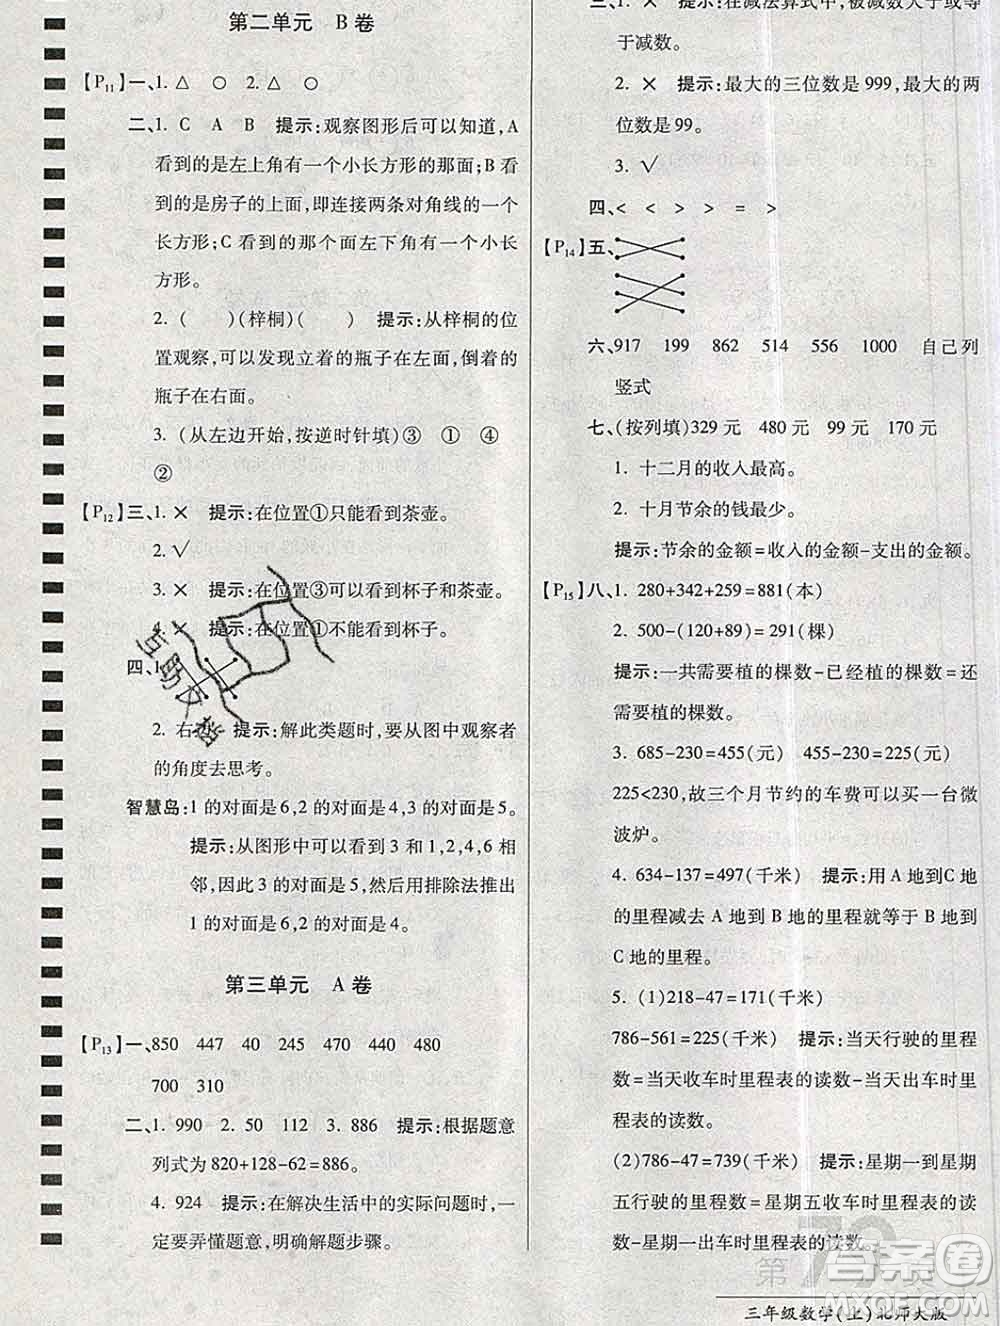 第二单元 B卷
【P11】一、1. △ ○ 2. △ ○
二、1. C A B 提示:观察图形后可以知道,A
看到的是左上角有一个小长方形的那面;B看
到的是房子的上面,即连接两条对角线的一个
长方形;C看到的那个面左下角有一个小长
方形。
2. ( )(梓桐)( ) 提示:从梓桐的位
置观察,可以发现立着的瓶子在左面,倒着的
瓶子在右面。
3. (从左边开始,按逆时针填)③ ① ④
②
【P12】三、1. × 提示:在位置①只能看到茶壶。
2. √
3. × 提示:在位置③可以看到杯子和茶壶。
4. × 提示:在位置①不能看到杯子。
四、1.
2. 右 提示:解此类题时,要从图中观察者
的角度去思考。
智慧岛:1的对面是6,2的对面是4,3的对面是5。
提示:从图形中可以看到3和1,2,4,6相
邻,因此3的对面是5,然后用排除法推出
1的对面是6,2的对面是4。
第三单元 A卷
【P13】一、850 447 40 245 470 440 480
700 310
二、1. 990 2. 50 112 3. 886 提示:根据题意
列式为820+128-62=886。
4. 924 提示:在解决生活中的实际问题时,一
定要弄懂题意,明确解题步骤。
三、1. × 提示:在减法算式中,被减数大于或等
于减数。
2. × 提示:最大的三位数是999,最大的两
位数是99。
3. √
四、< < > > = >
【P14】五、
六、917 199 862 514 556 1000 自己列
竖式
七、(按列填)329元 480元 99元 170元
1. 十二月的收入最高。
2. 十月节余的钱最少。
提示:节余的金额=收入的金额-支出的金额。
【P15】八、1. 280+342+259=881(本)
2. 500-(120+89)=291(棵)
提示:一共需要植的棵数-已经植的棵数=还
需要植的棵数。
3. 685-230=455(元) 455-230=225(元)
225<230,故三个月节约的车费可以买一台微
波炉。
4. 634-137=497(千米) 提示:用A地到C地
的里程减去A地到B地的里程就等于B地到
C地的里程。
5. (1)218-47=171(千米)
786-561=225(千米) 提示:当天行驶的里程
数=当天收车时里程表的读数-当天出车时里
程表的读数。
(2)786-47=739(千米) 提示:星期一到星期
五行驶的里程数=星期五收车时里程表的读
数-星期一出车时里程表的读数。
三年级数学(上)北师大版
互助文档
答案圈
第79页